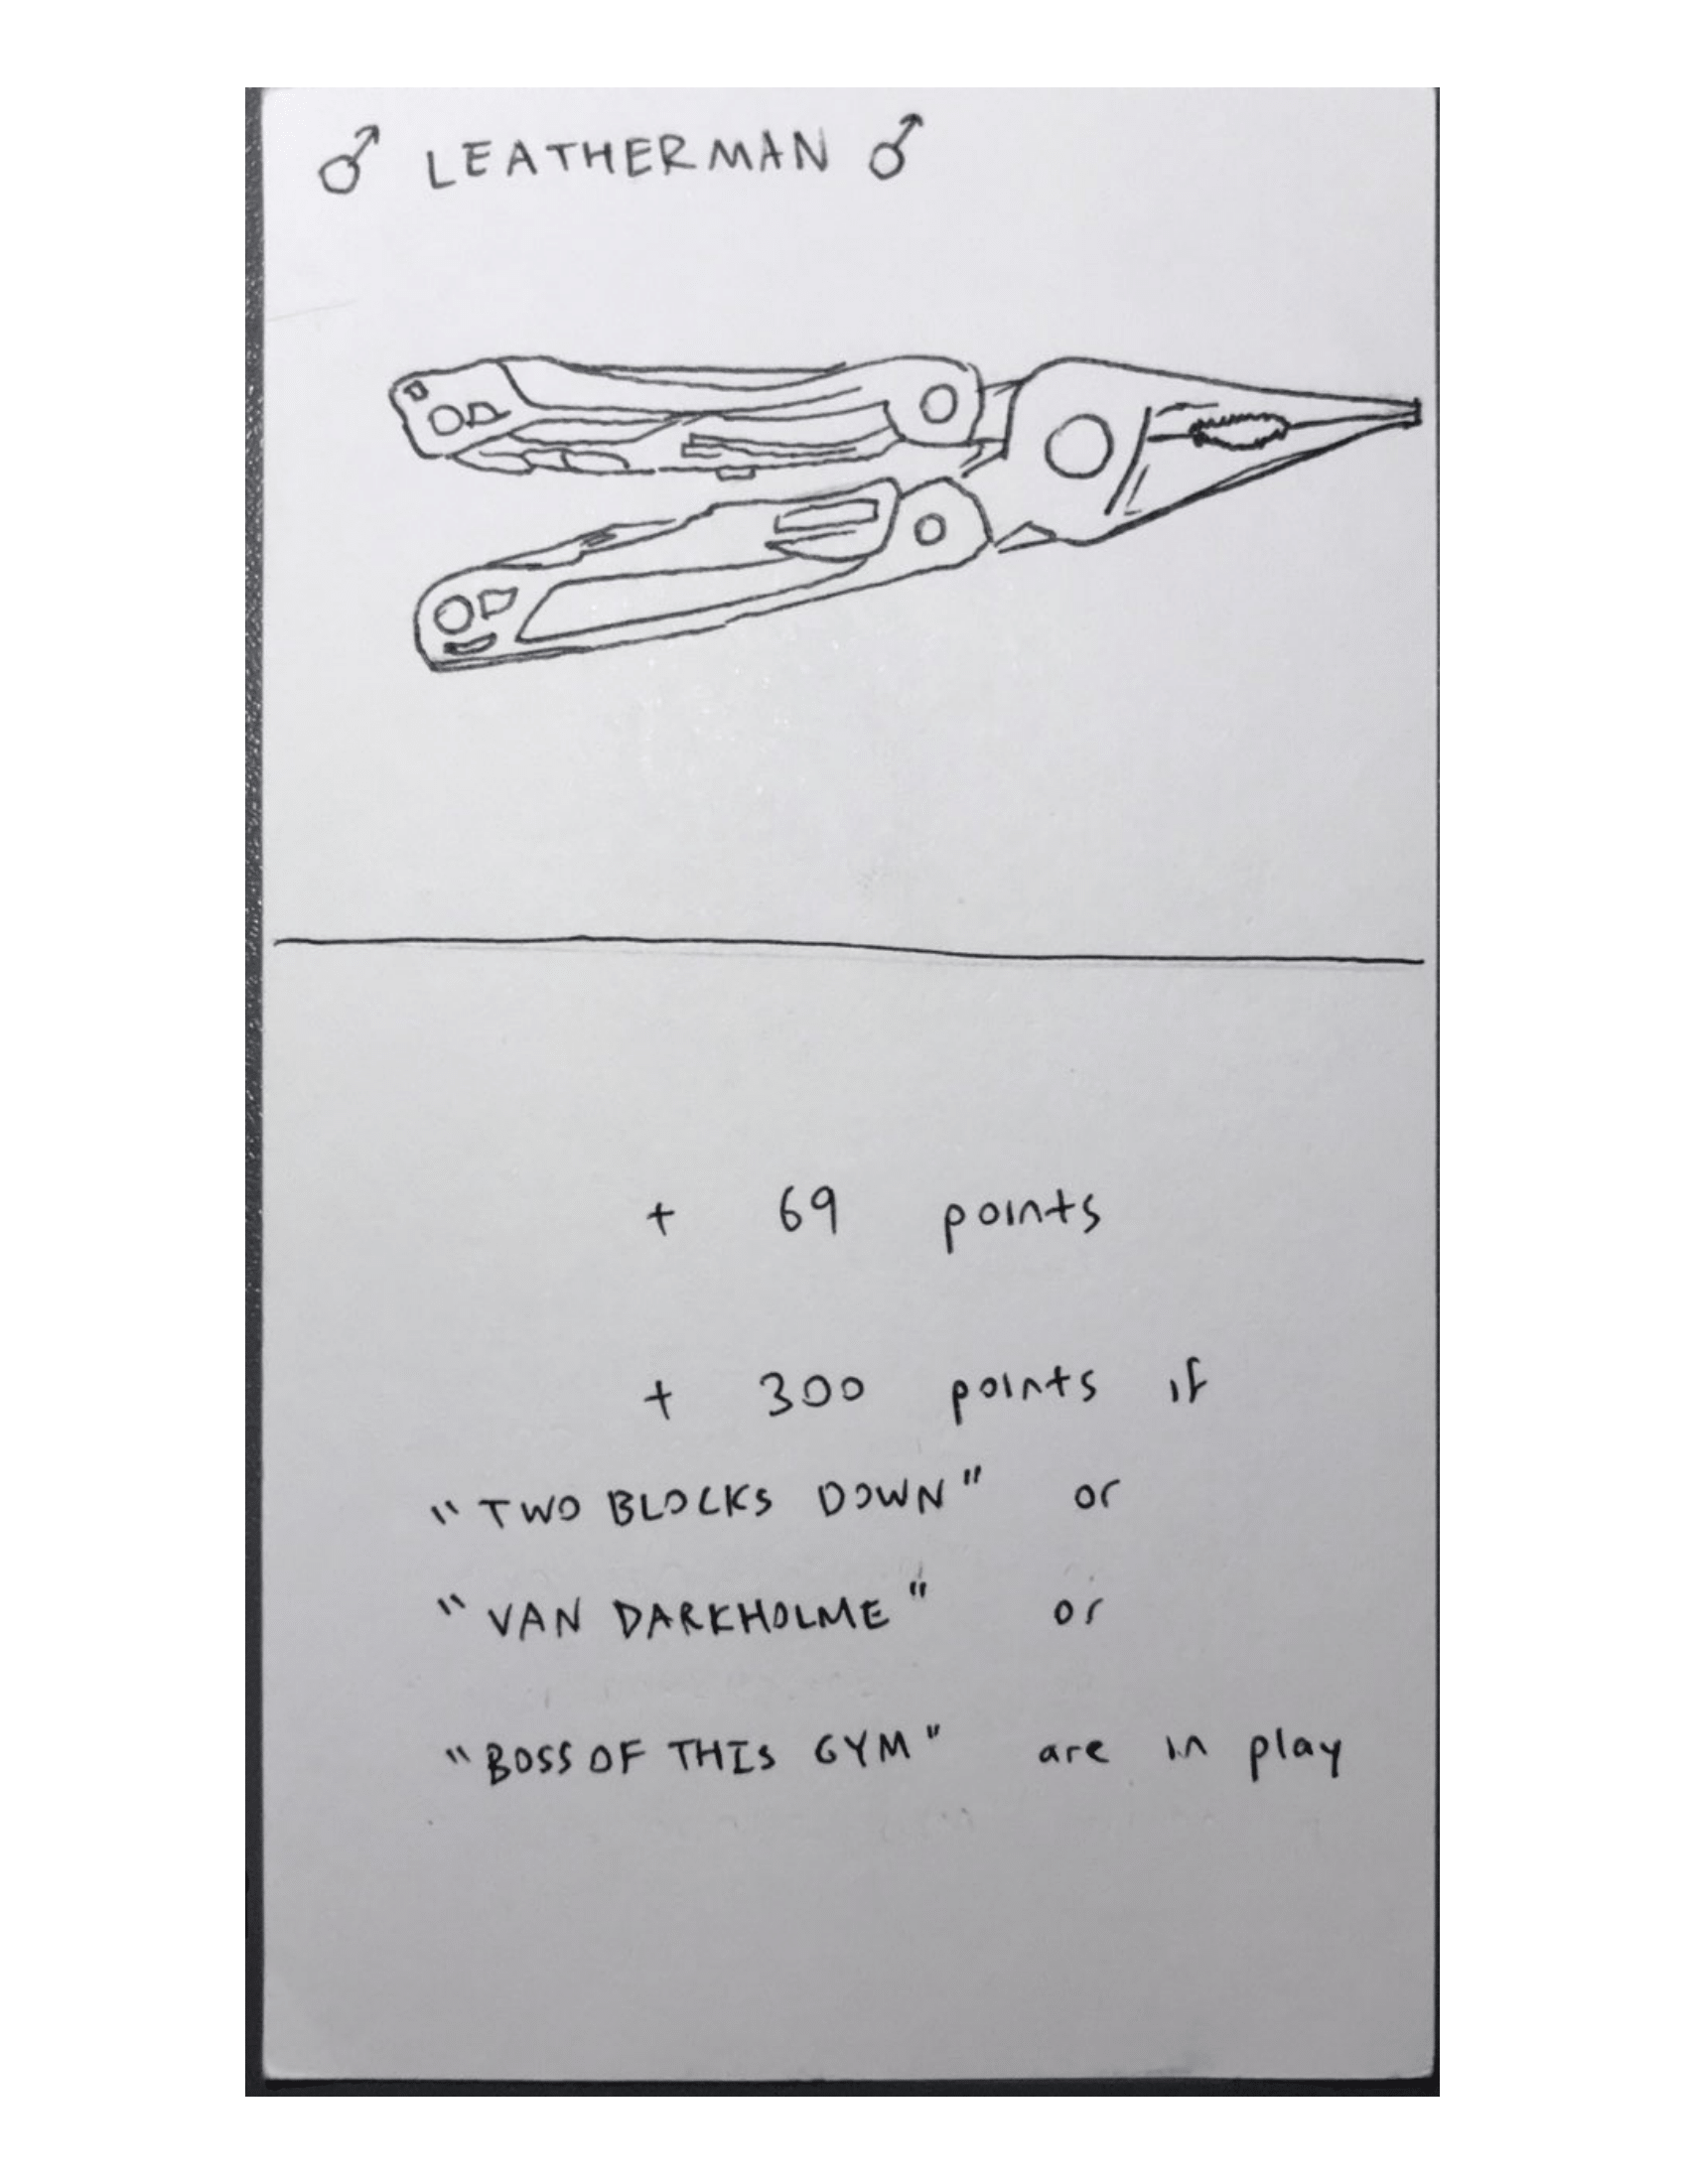 ♂ LEATHERMAN ♂
+ 69 points
+ 300 points if
"TWO BLOCKS DOWN" or
"VAN DARKHOLME" or
"BOSS OF THIS GYM" are in play